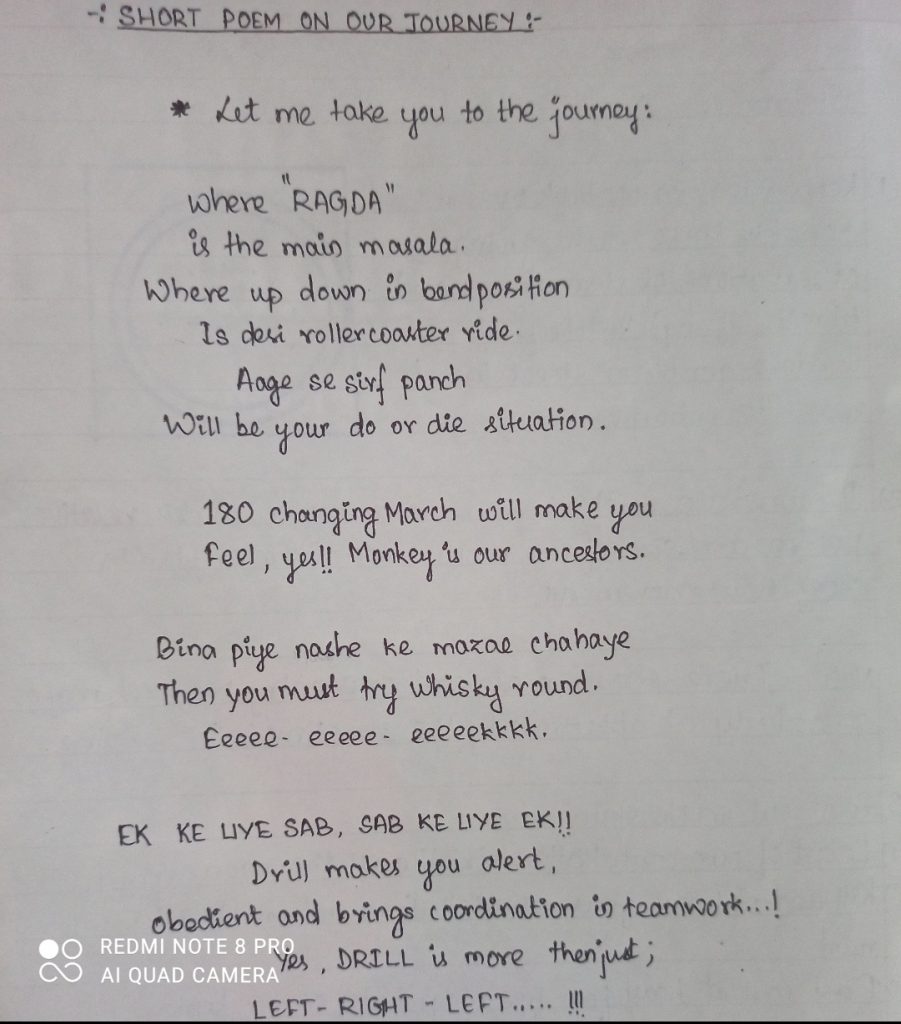 -: SHORT POEM ON OUR JOURNEY :-
* Let me take you to the journey:
where "RAGDA"
is the main masala.
Where up down in bendposition
Is desi rollercoaster ride.
Aage se sirf panch
Will be your do or die situation.
180 changing March will make you
Feel, yes!! Monkey is our ancestors.
Bina piye nashe ke mazae chahaye
Then you must try Whisky round.
Eeeee- eeeee- eeeeekkkk.
EK KE LIYE SAB, SAB KE LIYE EK!!
Drill makes you alert,
obedient and brings coordination in teamwork...!
Yes, DRILL is more then just;
LEFT- RIGHT - LEFT..... !!!
REDMI NOTE 8 PRO
AI QUAD CAMERA